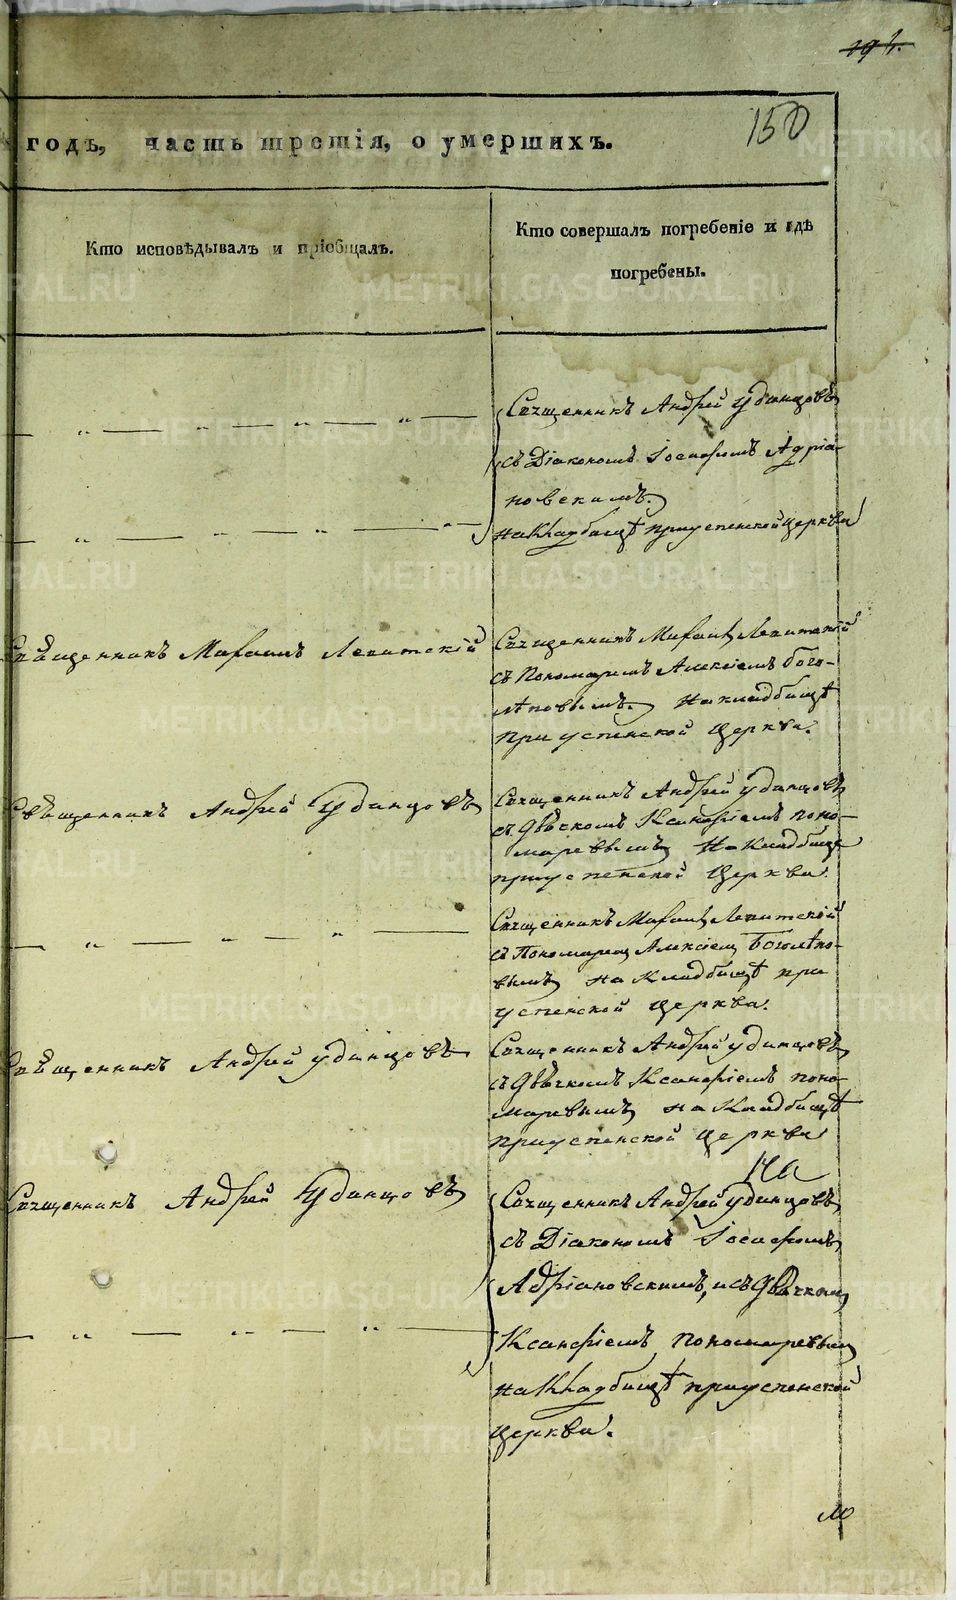 194.
150
годъ, часть третія, о умершихъ.
Кто исповѣдывалъ и пріобщалъ.
Кто совершалъ погребеніе и гдѣ
погребены.
Священникъ Андрей Удинцовъ
съ Діакономъ Іосафомъ Адріа-
новскимъ.
на Кладбищѣ при успенской церкви
Священникъ Михаилъ Левитскій
Священникъ Михаилъ Левитскій
съ Пономаремъ Алексіемъ Бого-
лѣповымъ. На кладбищѣ
при успенской церкви.
Священникъ Андрей Удинцовъ
Священникъ Андрей Удинцовъ
съ Дьячкомъ Ксанфіемъ поно-
маревымъ На Кладбищѣ
при успенской церкви.
Священникъ Михаилъ Левитскій
съ Пономаремъ Алексіемъ Боголѣпо-
вымъ на Кладбищѣ при
успенской церкви.
Священникъ Андрей Удинцовъ
Священникъ Андрей Удинцовъ
съ Дьячкомъ Ксанфіемъ поно-
маревымъ на Кладбищѣ
при успенской церкви
Священникъ Андрей Удинцовъ
Священникъ Андрей Удинцовъ
съ Діакономъ Іосафомъ
Адріановскимъ, и съ Дьячкомъ
Ксанфіемъ Пономаревымъ
на Кладбищѣ при успенской
церкви.
METRIKI.GASO-URAL.RU